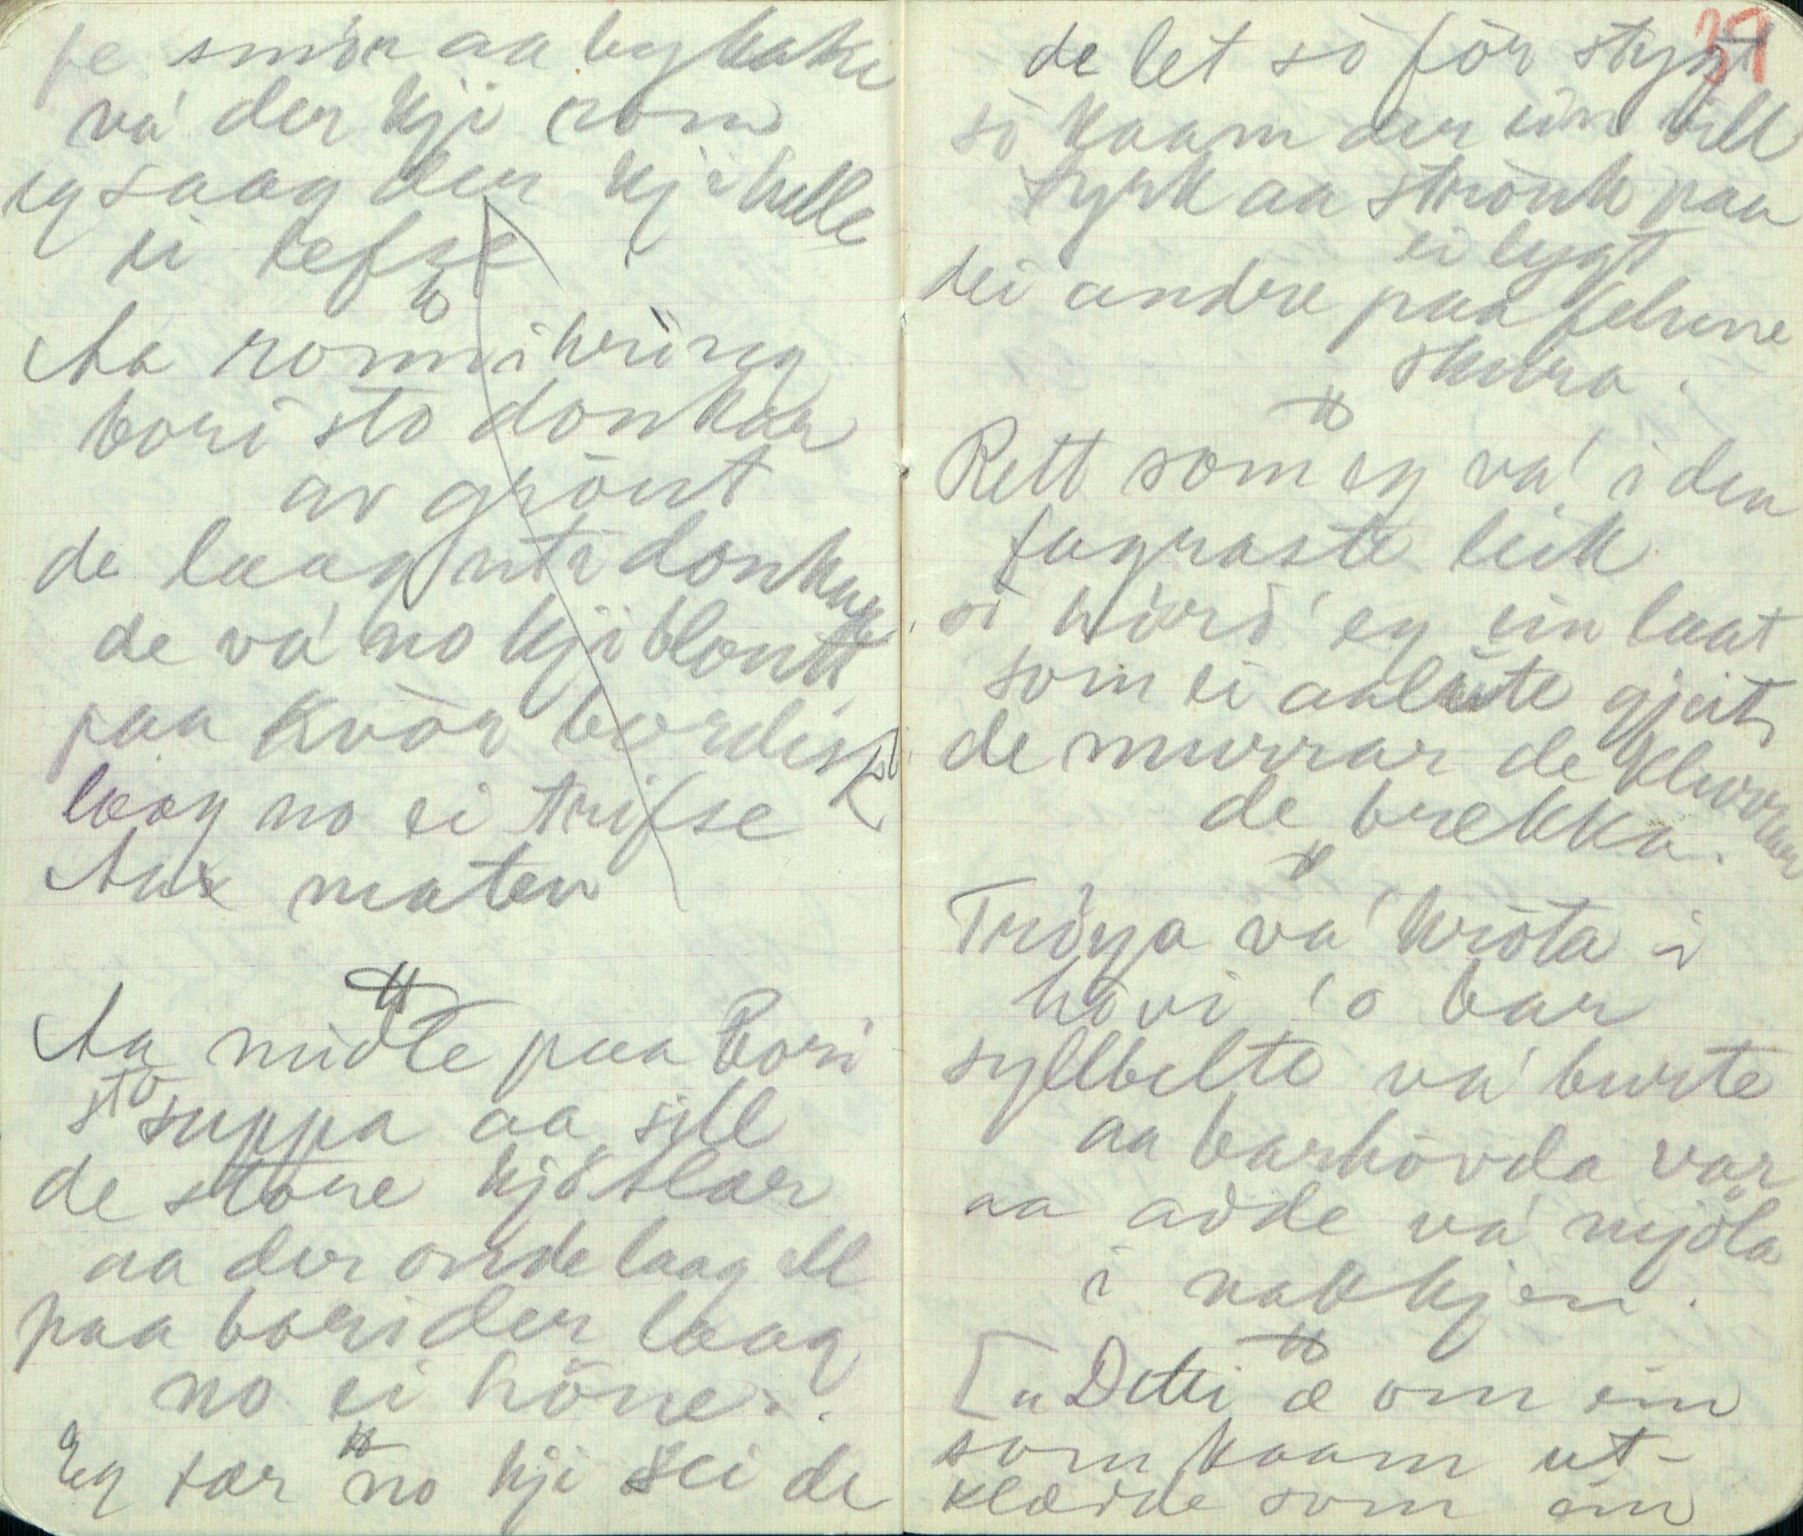 fe smör aa bykake
va' der kji rom
eg saag der kji helle
ei lefse
Aa romi ikring
bori sto donkar
av grönt
de laag uti donkar
de va' no kji blontt
paa kvòr bordisk
laag no ei trifse
Aa maten
Aa midle paa bori
sto suppa aa sill
de store kjötlar
aa der onde laag ell
paa bori der laag
no ei höne.
Eg tær no kji sei de
39
de let sò för stygt
sò kaam der ein vill
tyrk aa strönk paa
ei lygt
dei andre paa felune
skura.
Rett som eg va' i den
fagraste leik
sò höird' eg ein laat
som ei aaleite gjeit
de murrar de klurrar
de brekka.
Tröya va' kröta i
hövi 'o bar
syllbelte va' burte
aa barhövda var
aa adde va' mjöla
i nakkjen.
["Detti æ om ein
som kaam ut-
klædde som ein